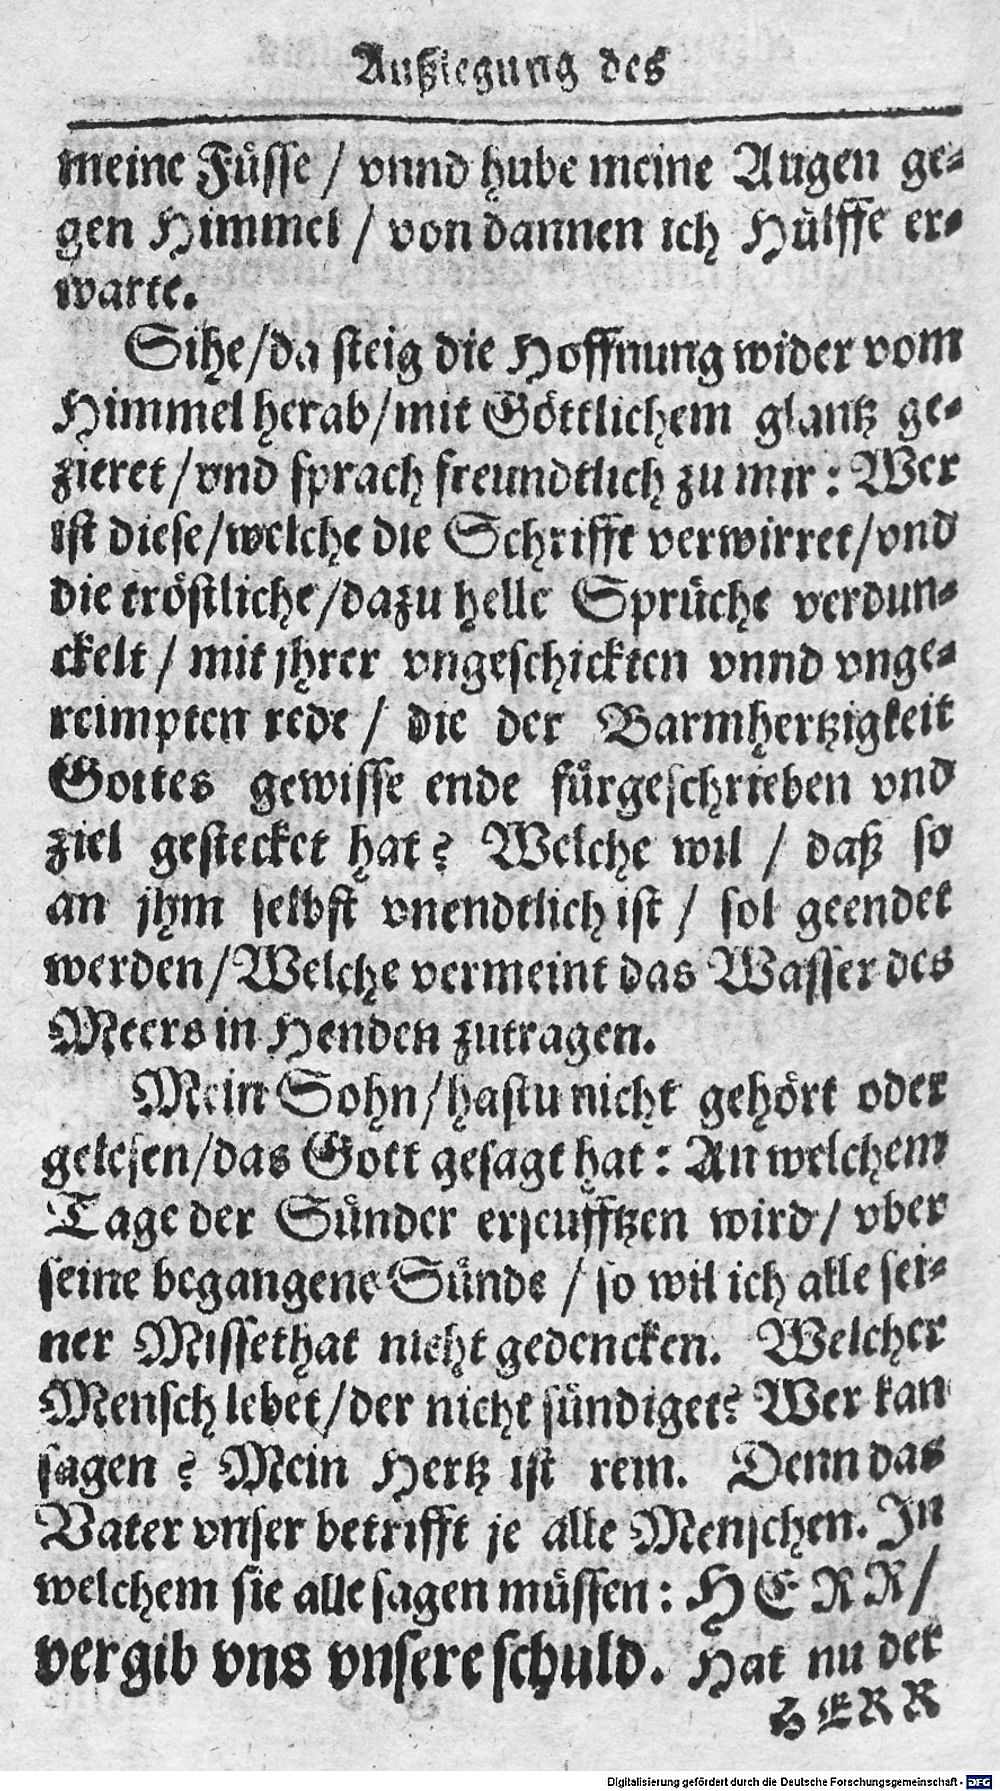 Außlegung des
meine Füsse / vnnd hube meine Augen ge-
gen Himmel / von dannen ich Hülffe er-
warte.
Sihe/da steig die Hoffnung wider vom
Himmel herab/mit Göttlichem glantz ge-
zieret/vnd sprach freundtlich zu mir: Wer
ist diese/welche die Schrifft verwirret/vnd
die tröstliche/dazu helle Sprüche verdun-
ckelt / mit jhrer vngeschickten vnnd vnge-
reimpten rede / die der Barmhertzigkeit
Gottes gewisse ende fürgeschrieben vnd
ziel gestecket hat? Welche wil / daß so
an jhm selbst vnendtlich ist / sol geendet
werden/Welche vermeint das Wasser des
Meers in Henden zutragen.
Mein Sohn/hastu nicht gehört oder
gelesen/das Gott gesagt hat: An welchem
Tage der Sünder erseufftzen wird/ vber
seine begangene Sünde / so wil ich alle sei-
ner Missethat nicht gedencken. Welcher
Mensch lebet/der nicht sündiget? Wer kan
sagen? Mein Hertz ist rein. Denn das
Vater vnser betrifft je alle Menschen. In
welchem sie alle sagen müssen: HERR/
vergib vns vnsere schuld. Hat nu der
HERR
Digitalisierung gefördert durch die Deutsche Forschungsgemeinschaft - DFG